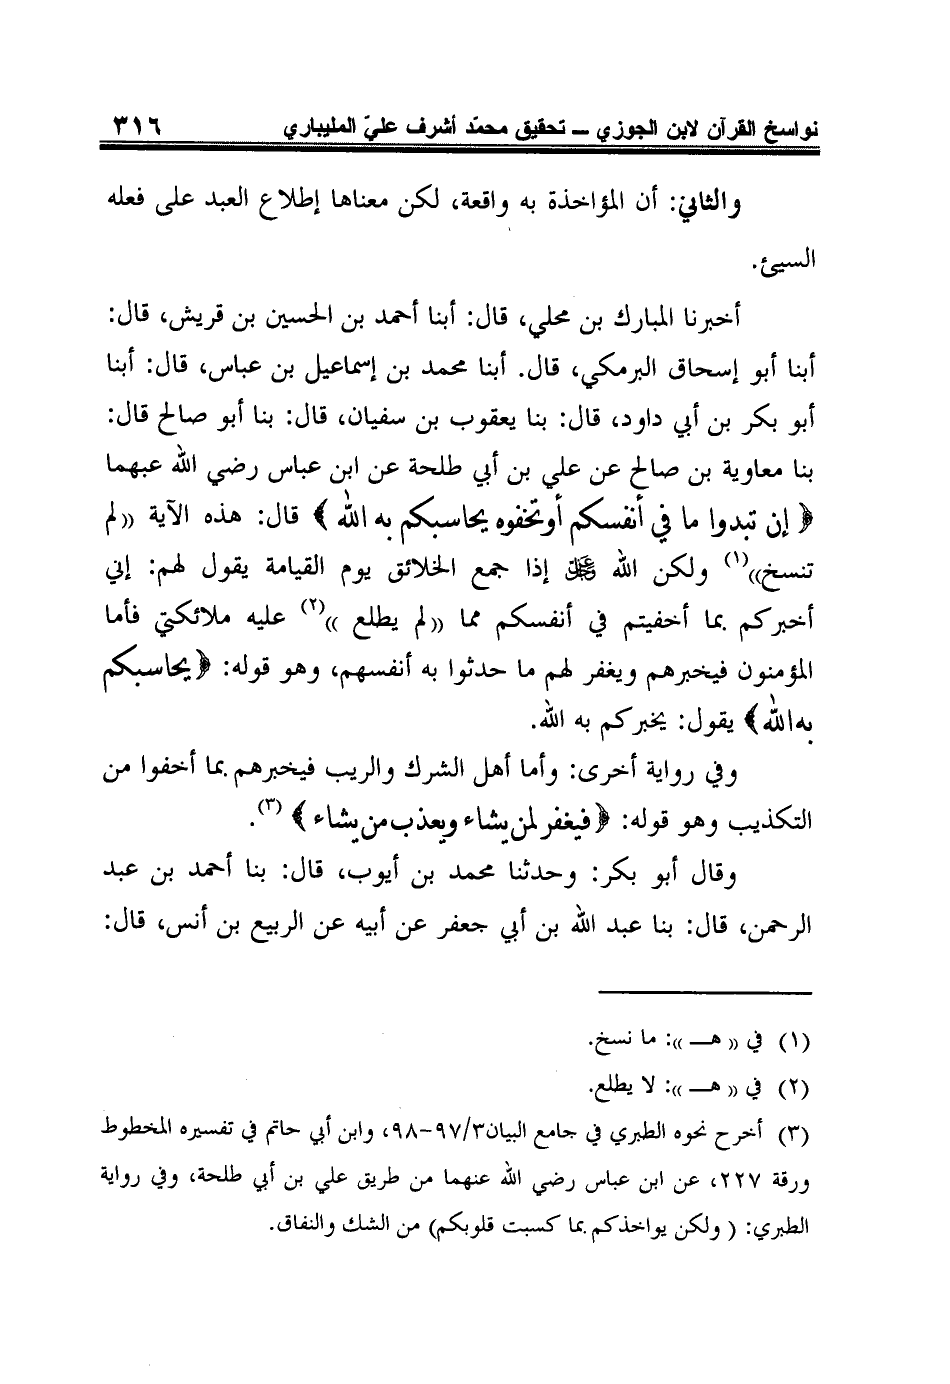 نواسخ القرآن لابن الجوزي ــ تحقيق محمّد أشرف عليّ المليباري ٣١٦
والثاني: أن المؤاخذة به واقعة، لكن معناها إطلاع العبد على فعله
السيئ.
أخبرنا المبارك بن محلي، قال: أبنا أحمد بن الحسين بن قريش، قال:
أبنا أبو إسحاق البرمكي، قال. أبنا محمد بن إسماعيل بن عباس، قال: أبنا
أبو بكر بن أبي داود، قال: بنا يعقوب بن سفيان، قال: بنا أبو صالح قال:
بنا معاوية بن صالح عن علي بن أبي طلحة عن ابن عباس رضي الله عبهما
﴿ إن تبدوا ما في أنفسكم أوتخفوه يحاسبكم به الله ﴾ قال: هذه الآية ((لم
تنسخ))(١) ولكن الله ﷻ إذا جمع الخلائق يوم القيامة يقول لهم: إني
أخبركم بما أخفيتم في أنفسكم مما ((لم يطلع ))(٢) عليه ملائكتي فأما
المؤمنون فيخبرهم ويغفر لهم ما حدثوا به أنفسهم، وهو قوله: ﴿يحاسبكم
به الله﴾ يقول: يخبركم به الله.
وفي رواية أخرى: وأما أهل الشرك والريب فيخبرهم بما أخفوا من
التكذيب وهو قوله: ﴿فيغفر لمن يشاء ويعذب من يشاء﴾ (٣).
وقال أبو بكر: وحدثنا محمد بن أيوب، قال: بنا أحمد بن عبد
الرحمن، قال: بنا عبد الله بن أبي جعفر عن أبيه عن الربيع بن أنس، قال:
(١) في (( هــ )): ما نسخ.
(٢) في (( هــ )): لا يطلع.
(٣) أخرح نحوه الطبري في جامع البيان٩٧/٣-٩٨، وابن أبي حاتم في تفسيره المخطوط
ورقة ٢٢٧، عن ابن عباس رضي الله عنهما من طريق علي بن أبي طلحة، وفي رواية
الطبري: ( ولكن يواخذكم بما كسبت قلوبكم) من الشك والنفاق.